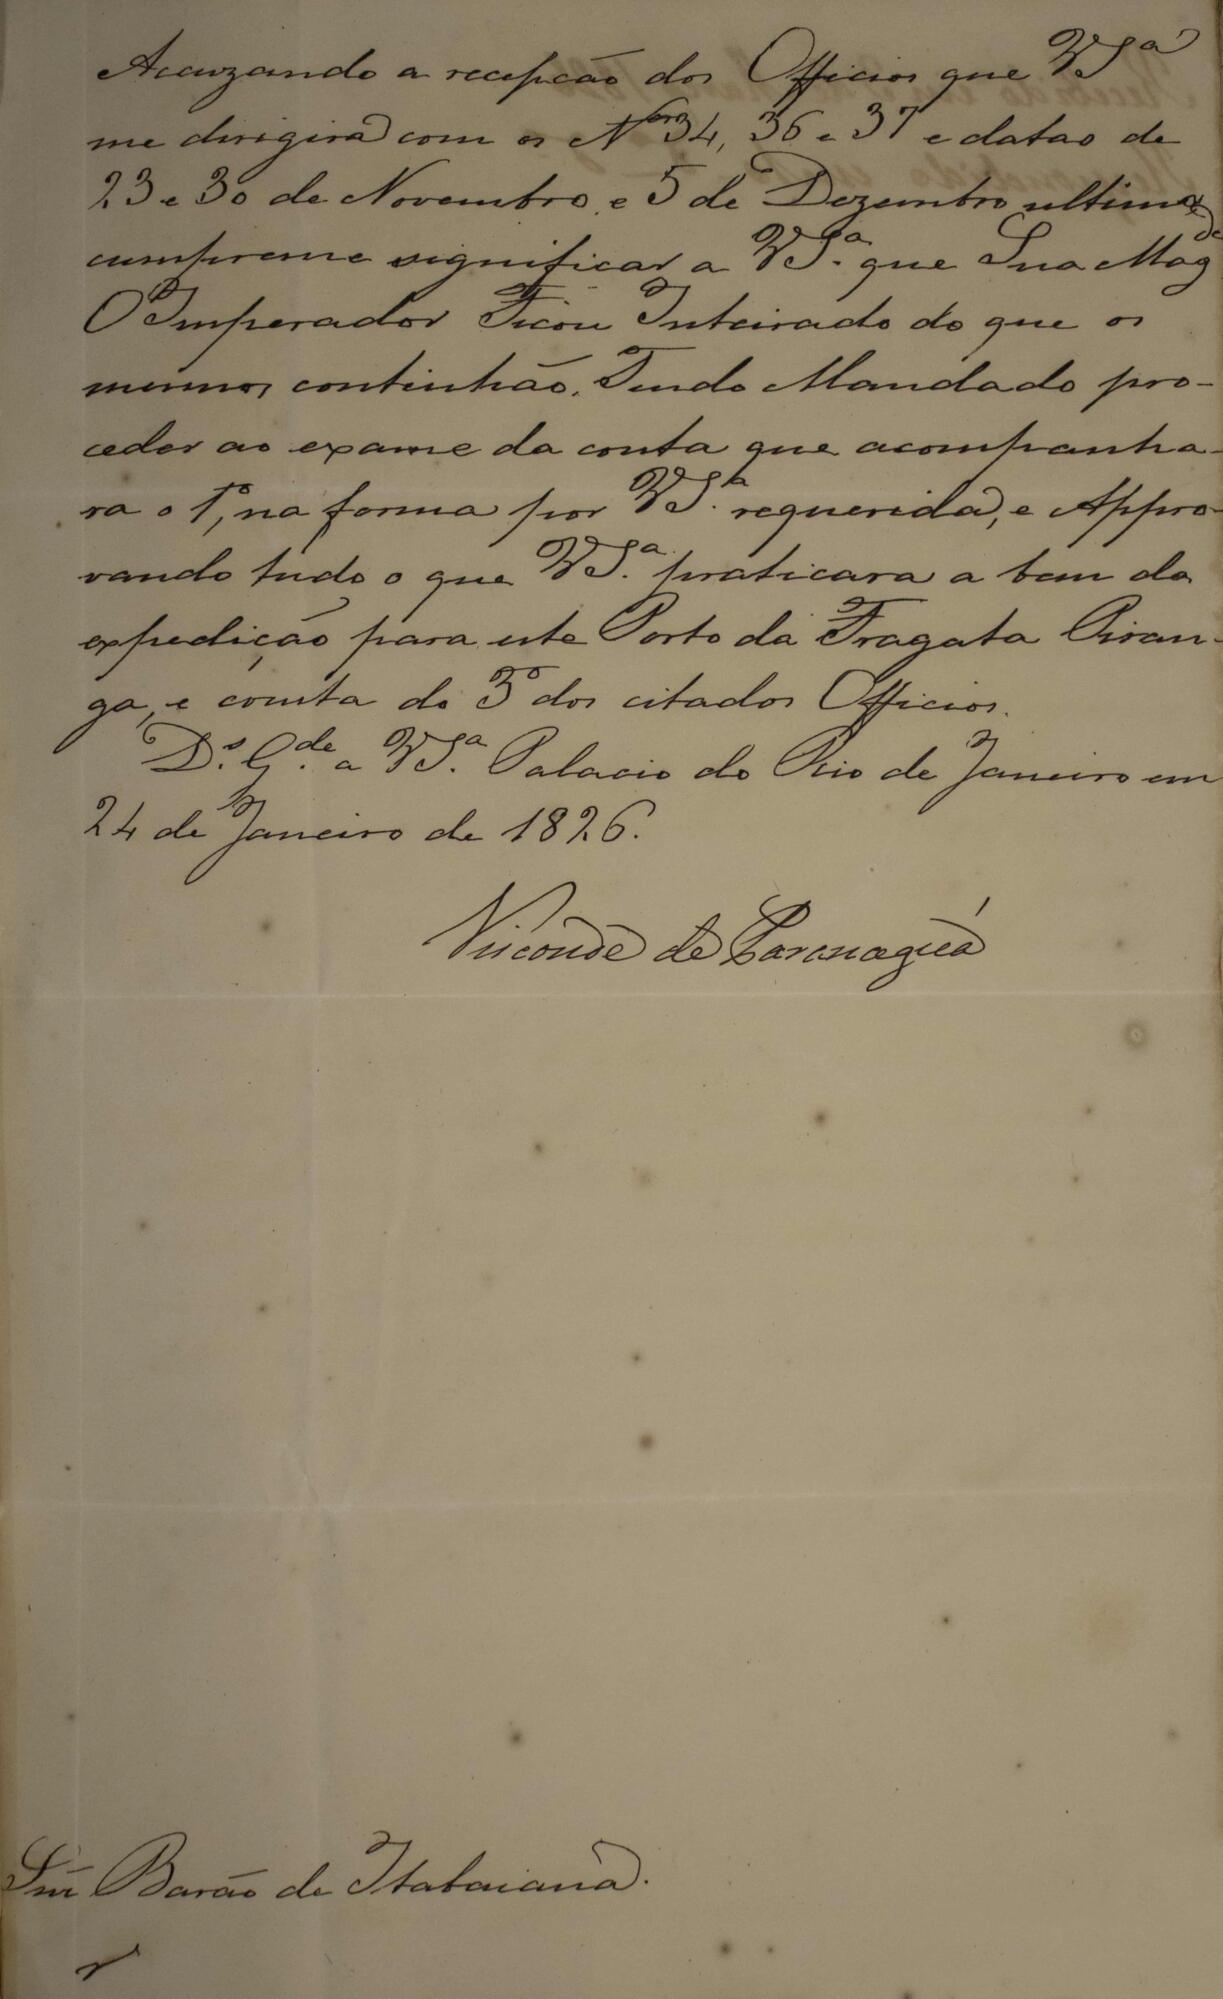 Acuzando a recepção dos Officios que VSª
me dirigira com os Nos 34, 36 e 37 e datas de
23 e 30 de Novembro, e 5 de Dezembro ultimo
cumpreme significar a VSª. que Sua Magde
O Imperador Ficou Inteirado do que os
mesmos continhão, Tendo Mandado pro-
ceder ao exame da conta que acompanha-
ra o 1º, na forma por VSª. requerida, e Appro-
vando tudo o que VSª. praticara a bem da
expedição para este Porto da Fragata Piran-
ga, e consta do 3º dos citados Officios.
Ds. Gde. a VSª. Palacio do Rio de Janeiro em
24 de Janeiro de 1826.
Visconde de Paranaguá
Snr Barão de Itabaiana.